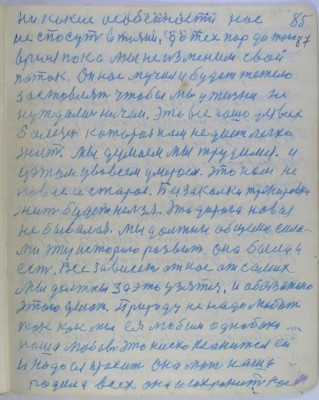 никакие особенности нас 85
не спасут в жизни, До тех пор до того 87
время пока мы не изменим свой
поток. Он нас мучил и будет тяжело
заставлять чтобы мы у жизни не
нуждались ничем. Это все наше для всех
болезни которая нам не дает легко
жить. Мы думаем мы трудимся. и
у этом у во всем умираем. Это нам не
новое а старое. Без закалки тренировки
жить будет нельзя. Это дорога новая
не бывалая. Мы должны общими сила-
ми эту историю развить она была и
есть. Все зависит от нас от самих
Мы должны за это узяться, и обязательно
этого делать. Природу не надо любить
так как мы ее любим однобоко
наша любовь это низко кланяться ей
и надо просить она мать наша
родила всех она и сохранит нас